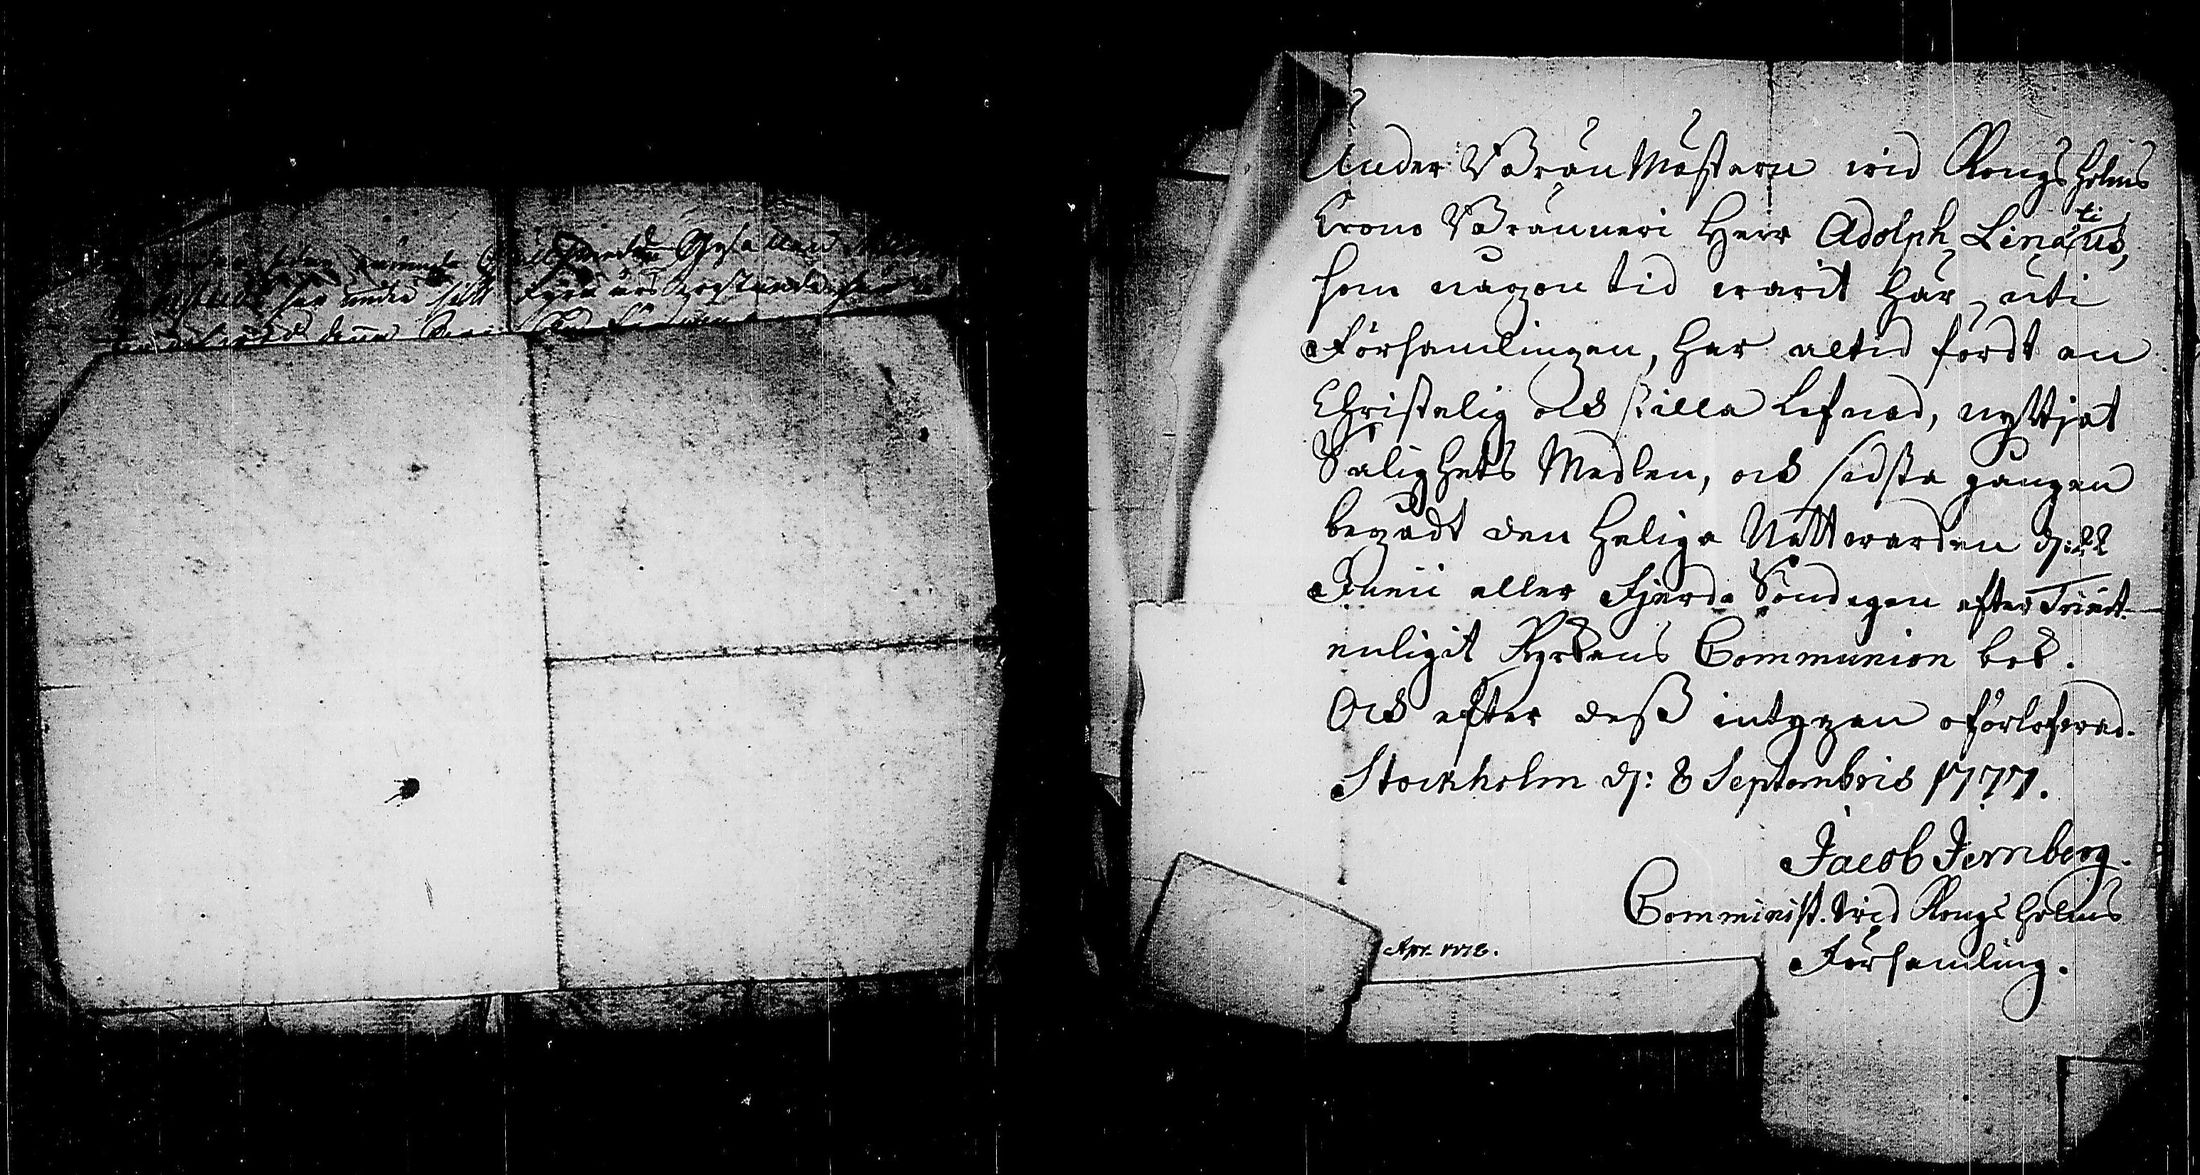 Under Bränmästaren wid Kongsholms
Crono Bränneri Herr Adolph Linatius,
som någon tid warit här uti
Församlingen, har altid fördt en
Christelig och stilla lefnad, nyttjat
Salighets Medlen, och sidsta gången
begådt den Heliga Nattwarden d: 22
Junii eller Fjerde Söndagen efter Trinit.
enligit Kyrkans Communion bok.
Och efter dess intygan oförlofwad.
Stockholm d: 8 Septembris 1777.
Jacob Jernberg.
Comminist. wid Kongsholms
Församling.